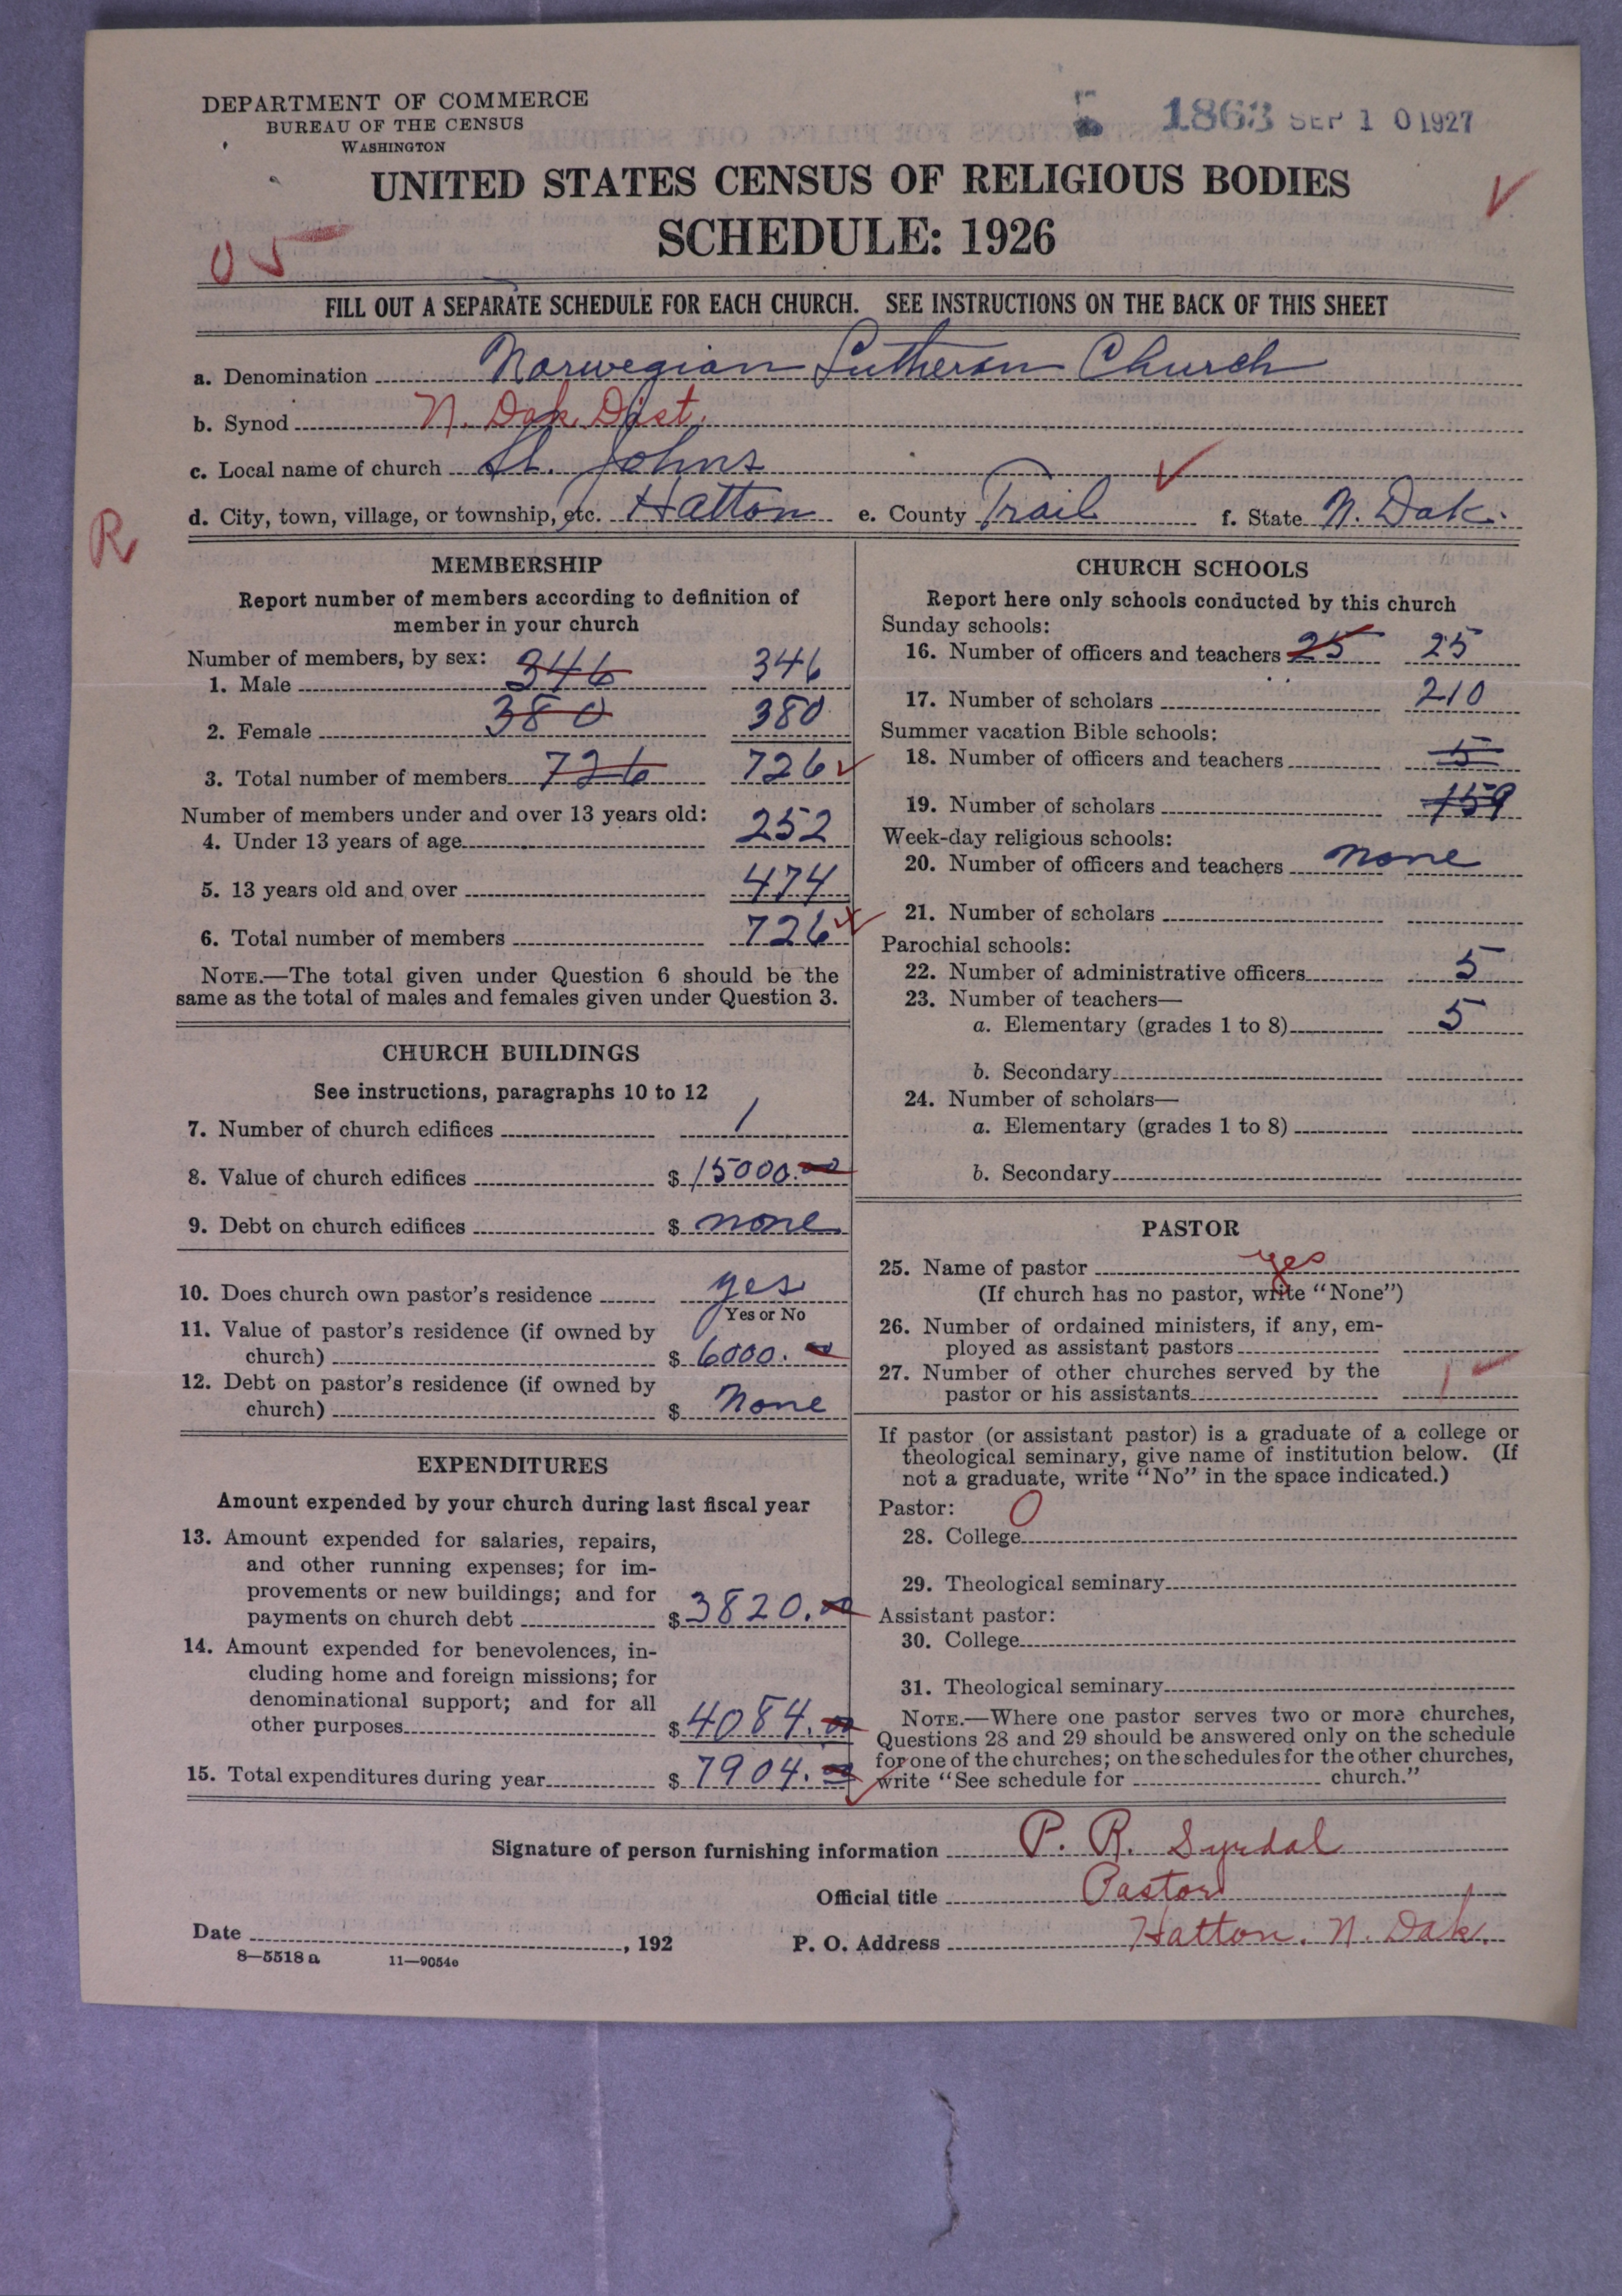 DEPARTMENT OF COMMERCE
BUREAU OF THE CENSUS
WASHINGTON
1863 SEP 10 1927
UNITED STATES CENSUS OF RELIGIOUS BODIES
SCHEDULE: 1926
05
FILL OUT A SEPARATE SCHEDULE FOR EACH CHURCH. SEE INSTRUCTIONS ON THE BACK OF THIS SHEET
a. Denomination Norwegian Lutheran Church
b. Synod N. Dak. Dist.
c. Local name of church St. Johns
d. City, town, village, or township, etc. Hatton e. County Trail f. State N. Dak.
R
MEMBERSHIP
Report number of members according to definition of
member in your church
Number of members, by sex:
1. Male 346 346
2. Female 380 380
3. Total number of members 726 726
Number of members under and over 13 years old:
4. Under 13 years of age 252
5. 13 years old and over 474
6. Total number of members 726
NOTE.—The total given under Question 6 should be the
same as the total of males and females given under Question 3.
CHURCH BUILDINGS
See instructions, paragraphs 10 to 12
7. Number of church edifices 1
8. Value of church edifices $ 15000.00
9. Debt on church edifices $ none
10. Does church own pastor's residence yes
Yes or No
11. Value of pastor's residence (if owned by
church) $ 6000.00
12. Debt on pastor's residence (if owned by
church) $ None
EXPENDITURES
Amount expended by your church during last fiscal year
13. Amount expended for salaries, repairs,
and other running expenses; for im-
provements or new buildings; and for
payments on church debt $ 3820.00
14. Amount expended for benevolences, in-
cluding home and foreign missions; for
denominational support; and for all
other purposes $ 4084.00
15. Total expenditures during year $ 7904.00
CHURCH SCHOOLS
Report here only schools conducted by this church
Sunday schools:
16. Number of officers and teachers 25 25
17. Number of scholars 210
Summer vacation Bible schools:
18. Number of officers and teachers 5
19. Number of scholars 159
Week-day religious schools:
20. Number of officers and teachers none
21. Number of scholars
Parochial schools:
22. Number of administrative officers 5
23. Number of teachers—
a. Elementary (grades 1 to 8) 5
b. Secondary
24. Number of scholars—
a. Elementary (grades 1 to 8)
b. Secondary
PASTOR
25. Name of pastor yes
(If church has no pastor, write "None")
26. Number of ordained ministers, if any, em-
ployed as assistant pastors
27. Number of other churches served by the
pastor or his assistants 1
If pastor (or assistant pastor) is a graduate of a college or
theological seminary, give name of institution below. (If
not a graduate, write "No" in the space indicated.)
Pastor: O
28. College
29. Theological seminary
Assistant pastor:
30. College
31. Theological seminary
NOTE.—Where one pastor serves two or more churches,
Questions 28 and 29 should be answered only on the schedule
for one of the churches; on the schedules for the other churches,
write "See schedule for church."
Signature of person furnishing information P. R. Syrdal
Official title Pastor
Date , 192 P. O. Address Hatton. N. Dak.
8—5518 a 11—9054e